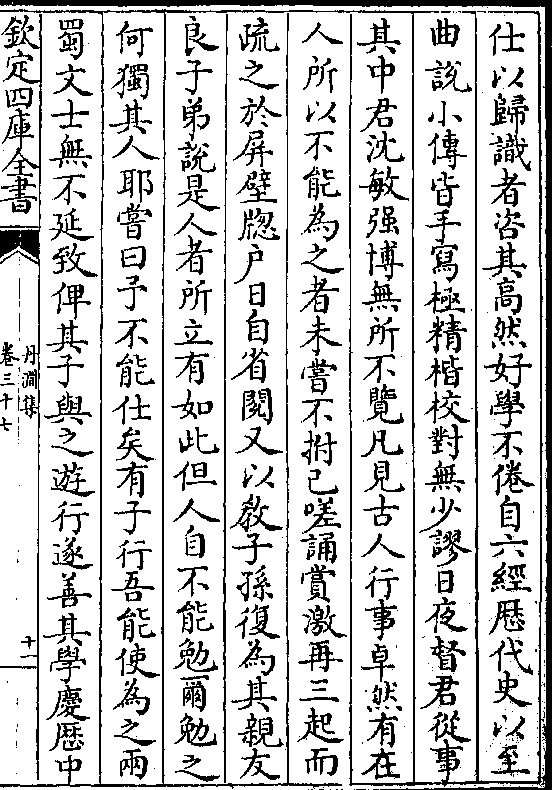 仕以歸識者咨其高然好學不倦自六經歴代史以至
曲說小傳皆手寫極精楷校對無少謬日夜督君從事
其中君沈敏强博無所不覽凡見古人行事卓然有在
人所以不能為之者未嘗不拊已嗟誦賞激再三起而
疏之於屏壁牎户日自省閲又以敎子孫復為其親友
良子弟說是人者所立有如此但人自不能勉爾勉之
何獨其人耶嘗曰予不能仕矣有子行吾能使為之兩
蜀文士無不延致俾其子與之遊行遂善其學慶歴中
欽定四庫全書
丹淵集
卷三十七
十一